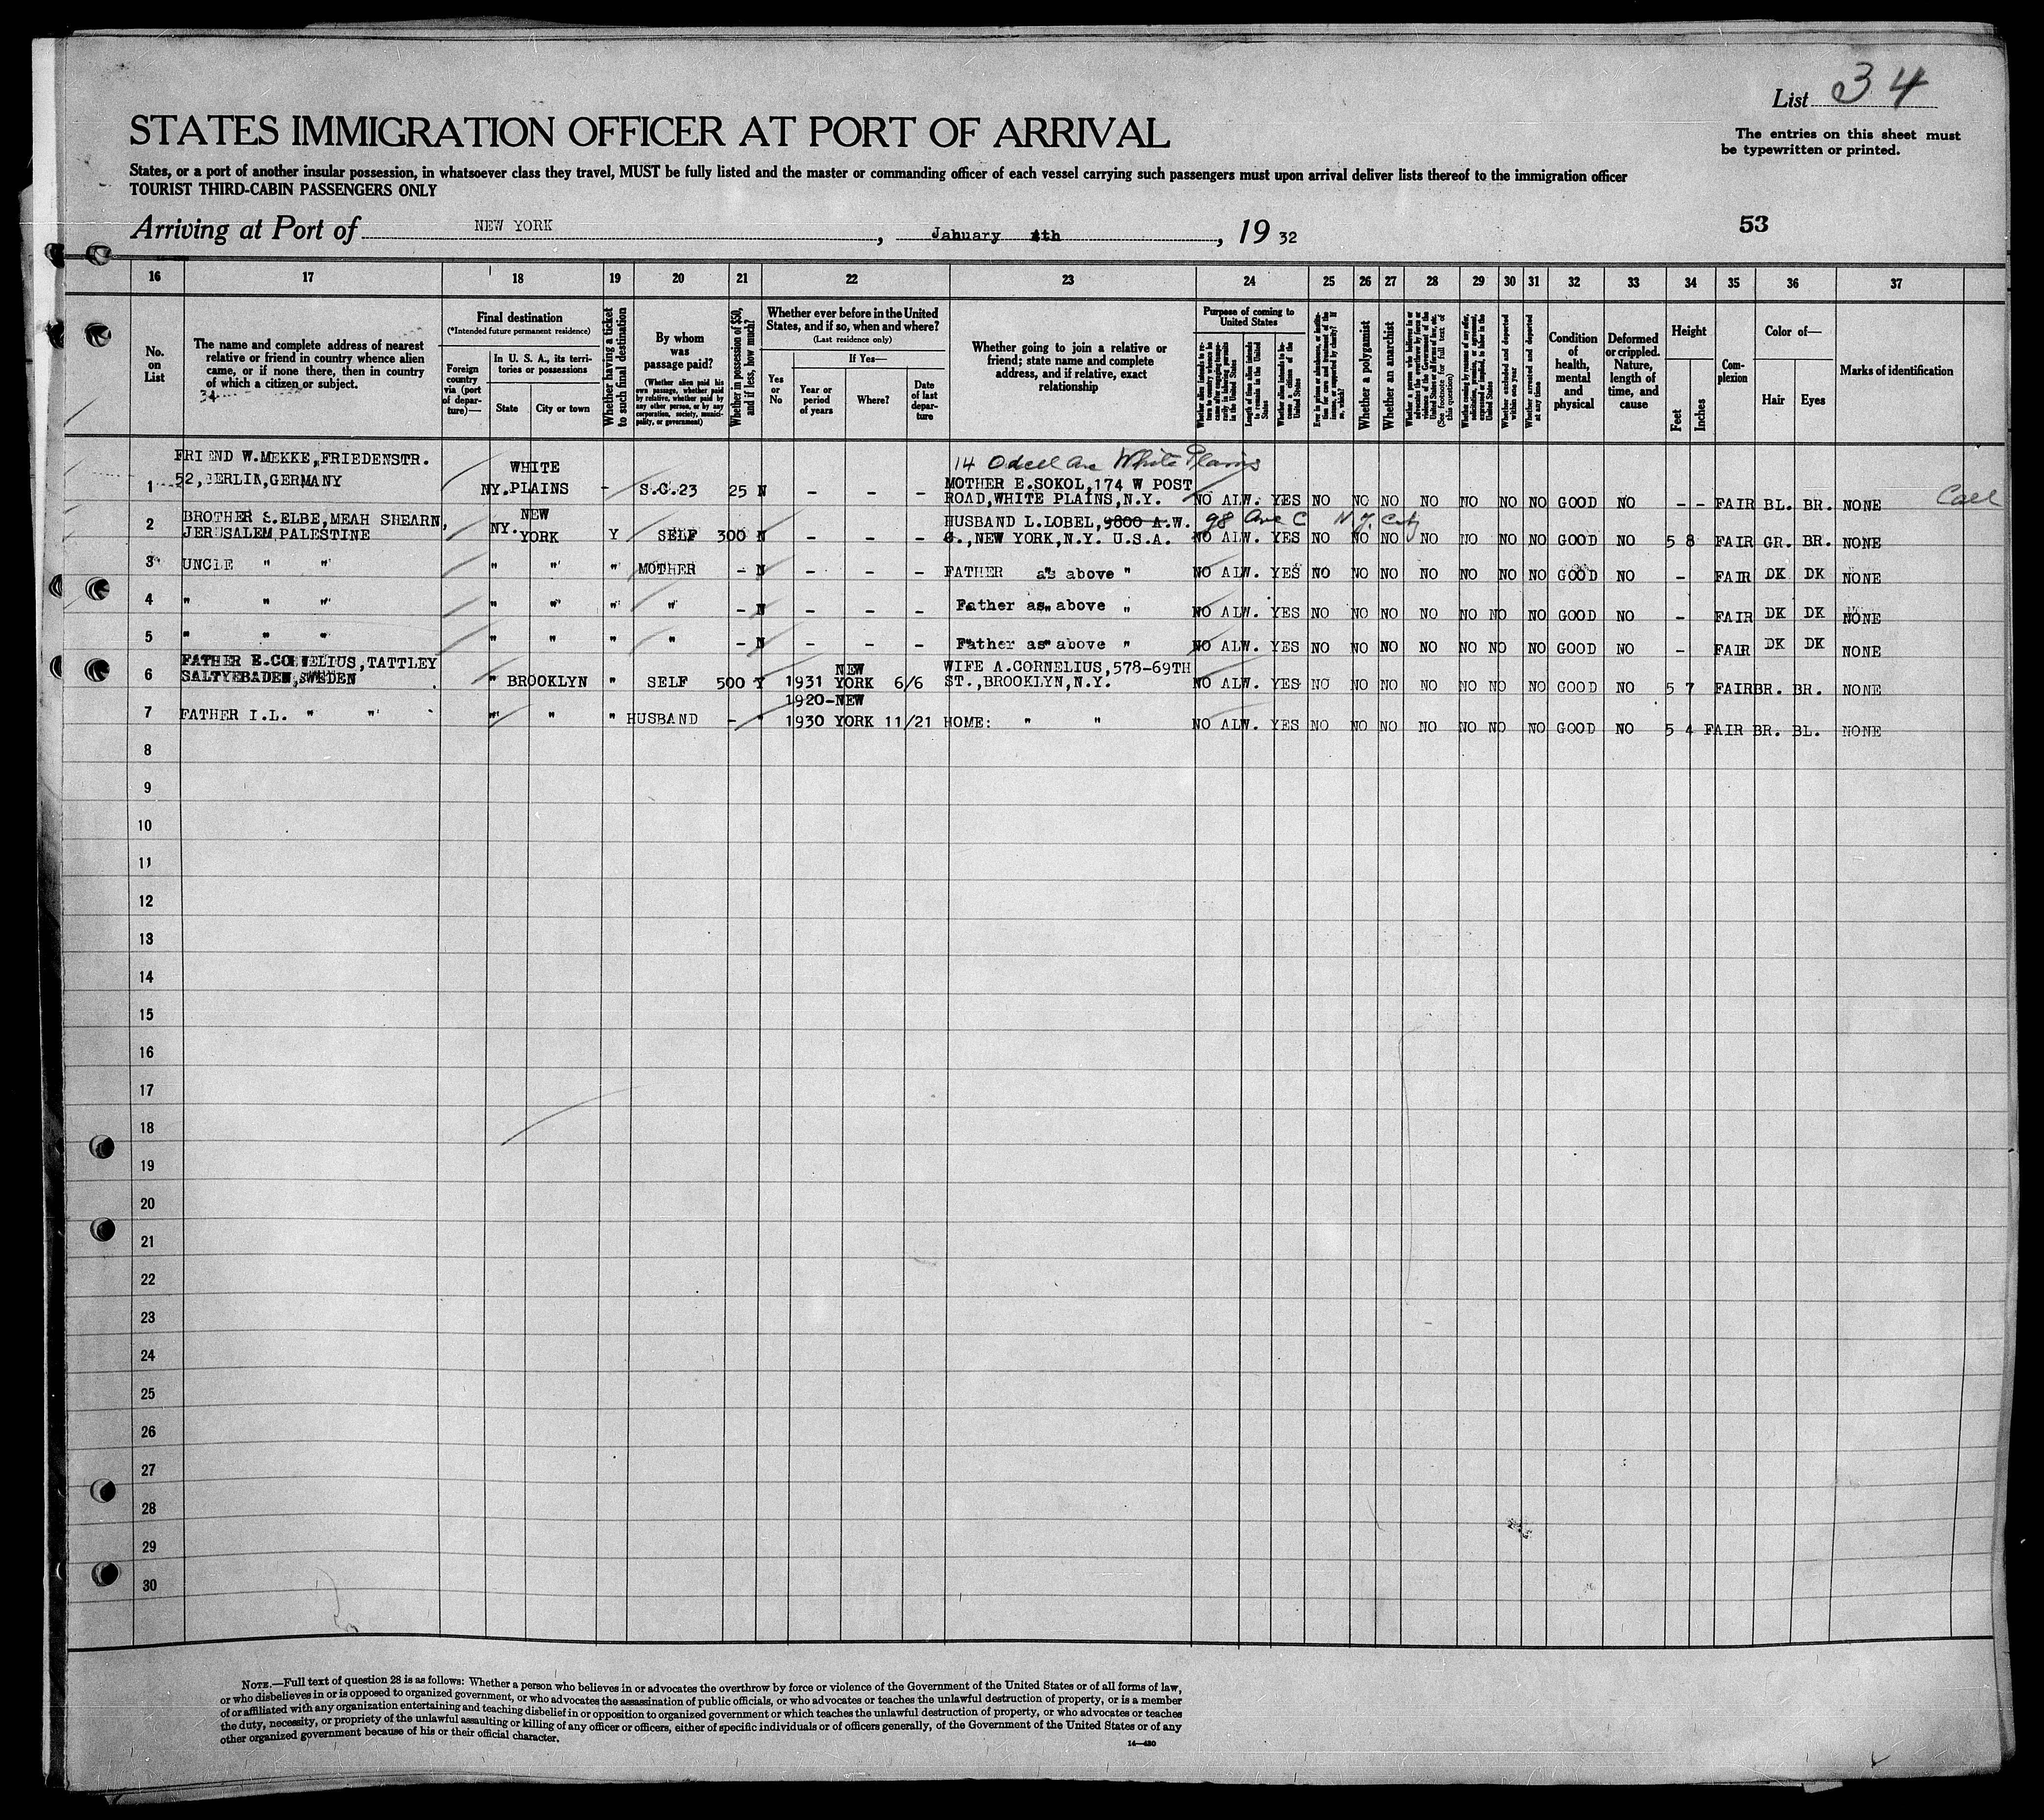 List 34
STATES IMMIGRATION OFFICER AT PORT OF ARRIVAL
The entries on this sheet must
be typewritten or printed.
States, or a port of another insular possession, in whatsoever class they travel, MUST be fully listed and the master or commanding officer of each vessel carrying such passengers must upon arrival deliver lists thereof to the immigration officer
TOURIST THIRD-CABIN PASSENGERS ONLY
Arriving at Port of NEW YORK, January 4th, 19 32
53
16 17 18 19 20 21 22 23 24 25 26 27 28 29 30 31 32 33 34 35 36 37
No. on List
The name and complete address of nearest
relative or friend in country whence alien
came, or if none there, then in country
of which a citizen or subject.
34
Final destination
(*Intended future permanent residence)
Foreign country via (port of departure)—
In U. S. A., its territories or possessions
State
City or town
Whether having a ticket to such final destination
By whom was passage paid?
(Whether alien paid his own passage, whether paid by relative, whether paid by any other person, or by any corporation, society, municipality, or government)
Whether in possession of $50, and if less, how much?
Whether ever before in the United States, and if so, when and where?
(Last residence only)
Yes or No
If Yes—
Year or period of years
Where?
Date of last departure
Whether going to join a relative or
friend; state name and complete
address, and if relative, exact
relationship
Purpose of coming to United States
Length of time alien intends to remain in the United States
Whether alien intends to become a citizen of the United States
Whether a polygamist
Whether an anarchist
(See footnote for full text of this question)
Whether excluded and deported within one year
Whether arrested and deported at any time
Condition of health, mental and physical
Deformed or crippled. Nature, length of time, and cause
Height
Feet
Inches
Complexion
Color of—
Hair
Eyes
Marks of identification
FRIEND W.MEKKE,FRIEDENSTR. WHITE 14 Odell Ave White Plains
1 52,BERLIN,GERMANY NY. PLAINS - S.G.23 25 N - - - MOTHER E.SOKOL,174 W POST
ROAD,WHITE PLAINS,N.Y. NO ALW. YES NO NO NO NO NO NO NO GOOD NO - - FAIR BL. BR. NONE Call
2 BROTHER S.ELBE,MEAH SHEARN, NEW HUSBAND L.LOBEL,9800 A.W. 98 Ave C N.Y. City
JERUSALEM,PALESTINE NY. YORK Y SELF 300 N - - - G.,NEW YORK,N.Y. U.S.A. NO ALW. YES NO NO NO NO NO NO NO GOOD NO 5 8 FAIR GR. BR. NONE
3 UNCLE " " " " " MOTHER - N - - - FATHER as above " NO ALW. YES NO NO NO NO NO NO NO GOOD NO - FAIR DK DK NONE
4 " " " " " " " - N - - - Father as above " NO ALW. YES NO NO NO NO NO NO NO GOOD NO - FAIR DK DK NONE
5 " " " " " " " - N - - - Father as above " NO ALW. YES NO NO NO NO NO NO NO GOOD NO - FAIR DK DK NONE
6 FATHER E.CORNELIUS,TATTLEY NEW WIFE A.CORNELIUS,578-69TH
SALTYEBADEN,SWEDEN " BROOKLYN " SELF 500 Y 1931 YORK 6/6 ST.,BROOKLYN,N.Y. NO ALW. YES NO NO NO NO NO NO NO GOOD NO 5 7 FAIR BR. BR. NONE
1920-NEW
7 FATHER I.L. " " " " " HUSBAND - " 1930 YORK 11/21 HOME: " " NO ALW. YES NO NO NO NO NO NO NO GOOD NO 5 4 FAIR BR. BL. NONE
8
9
10
11
12
13
14
15
16
17
18
19
20
21
22
23
24
25
26
27
28
29
30
NOTE.—Full text of question 28 is as follows: Whether a person who believes in or advocates the overthrow by force or violence of the Government of the United States or of all forms of law,
or who disbelieves in or is opposed to organized government, or who advocates the assassination of public officials, or who advocates or teaches the unlawful destruction of property, or is a member
of or affiliated with any organization entertaining and teaching disbelief in or opposition to organized government or which teaches the unlawful destruction of property, or who advocates or teaches
the duty, necessity, or propriety of the unlawful assaulting or killing of any officer or officers, either of specific individuals or of officers generally, of the Government of the United States or of any
other organized government because of his or their official character.
14—430